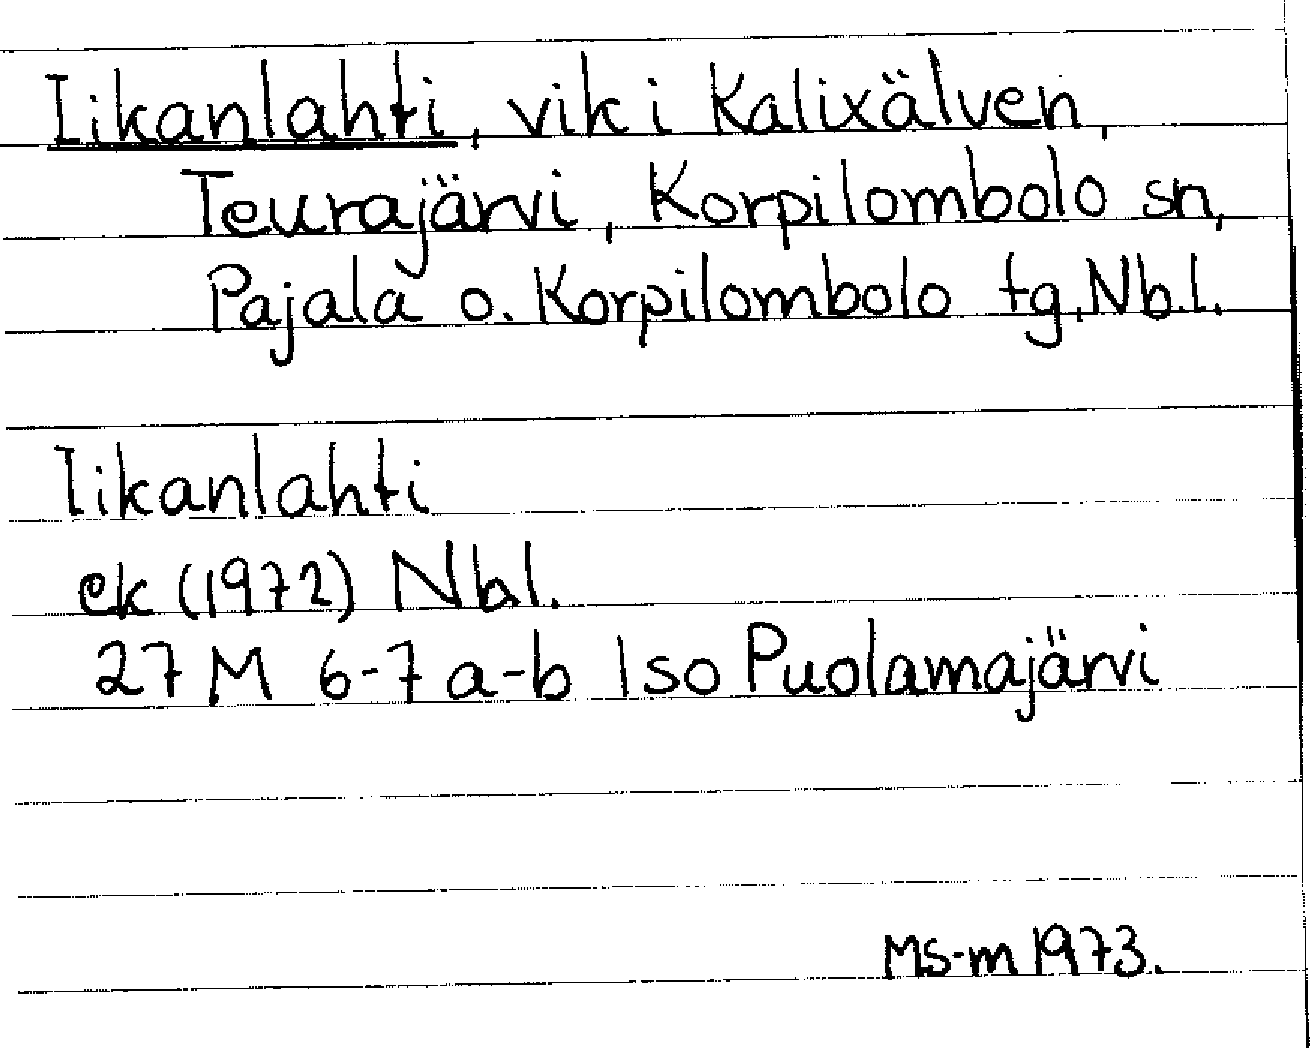 Iikanlahti, vik i Kalixälven,
Teurajärvi, Korpilombolo sn,
Pajala o. Korpilombolo tg, Nb.l.
Iikanlahti
ek (1972) Nbl.
27 M 6-7 a-b Iso Puolamajärvi
Ms-m 1973.